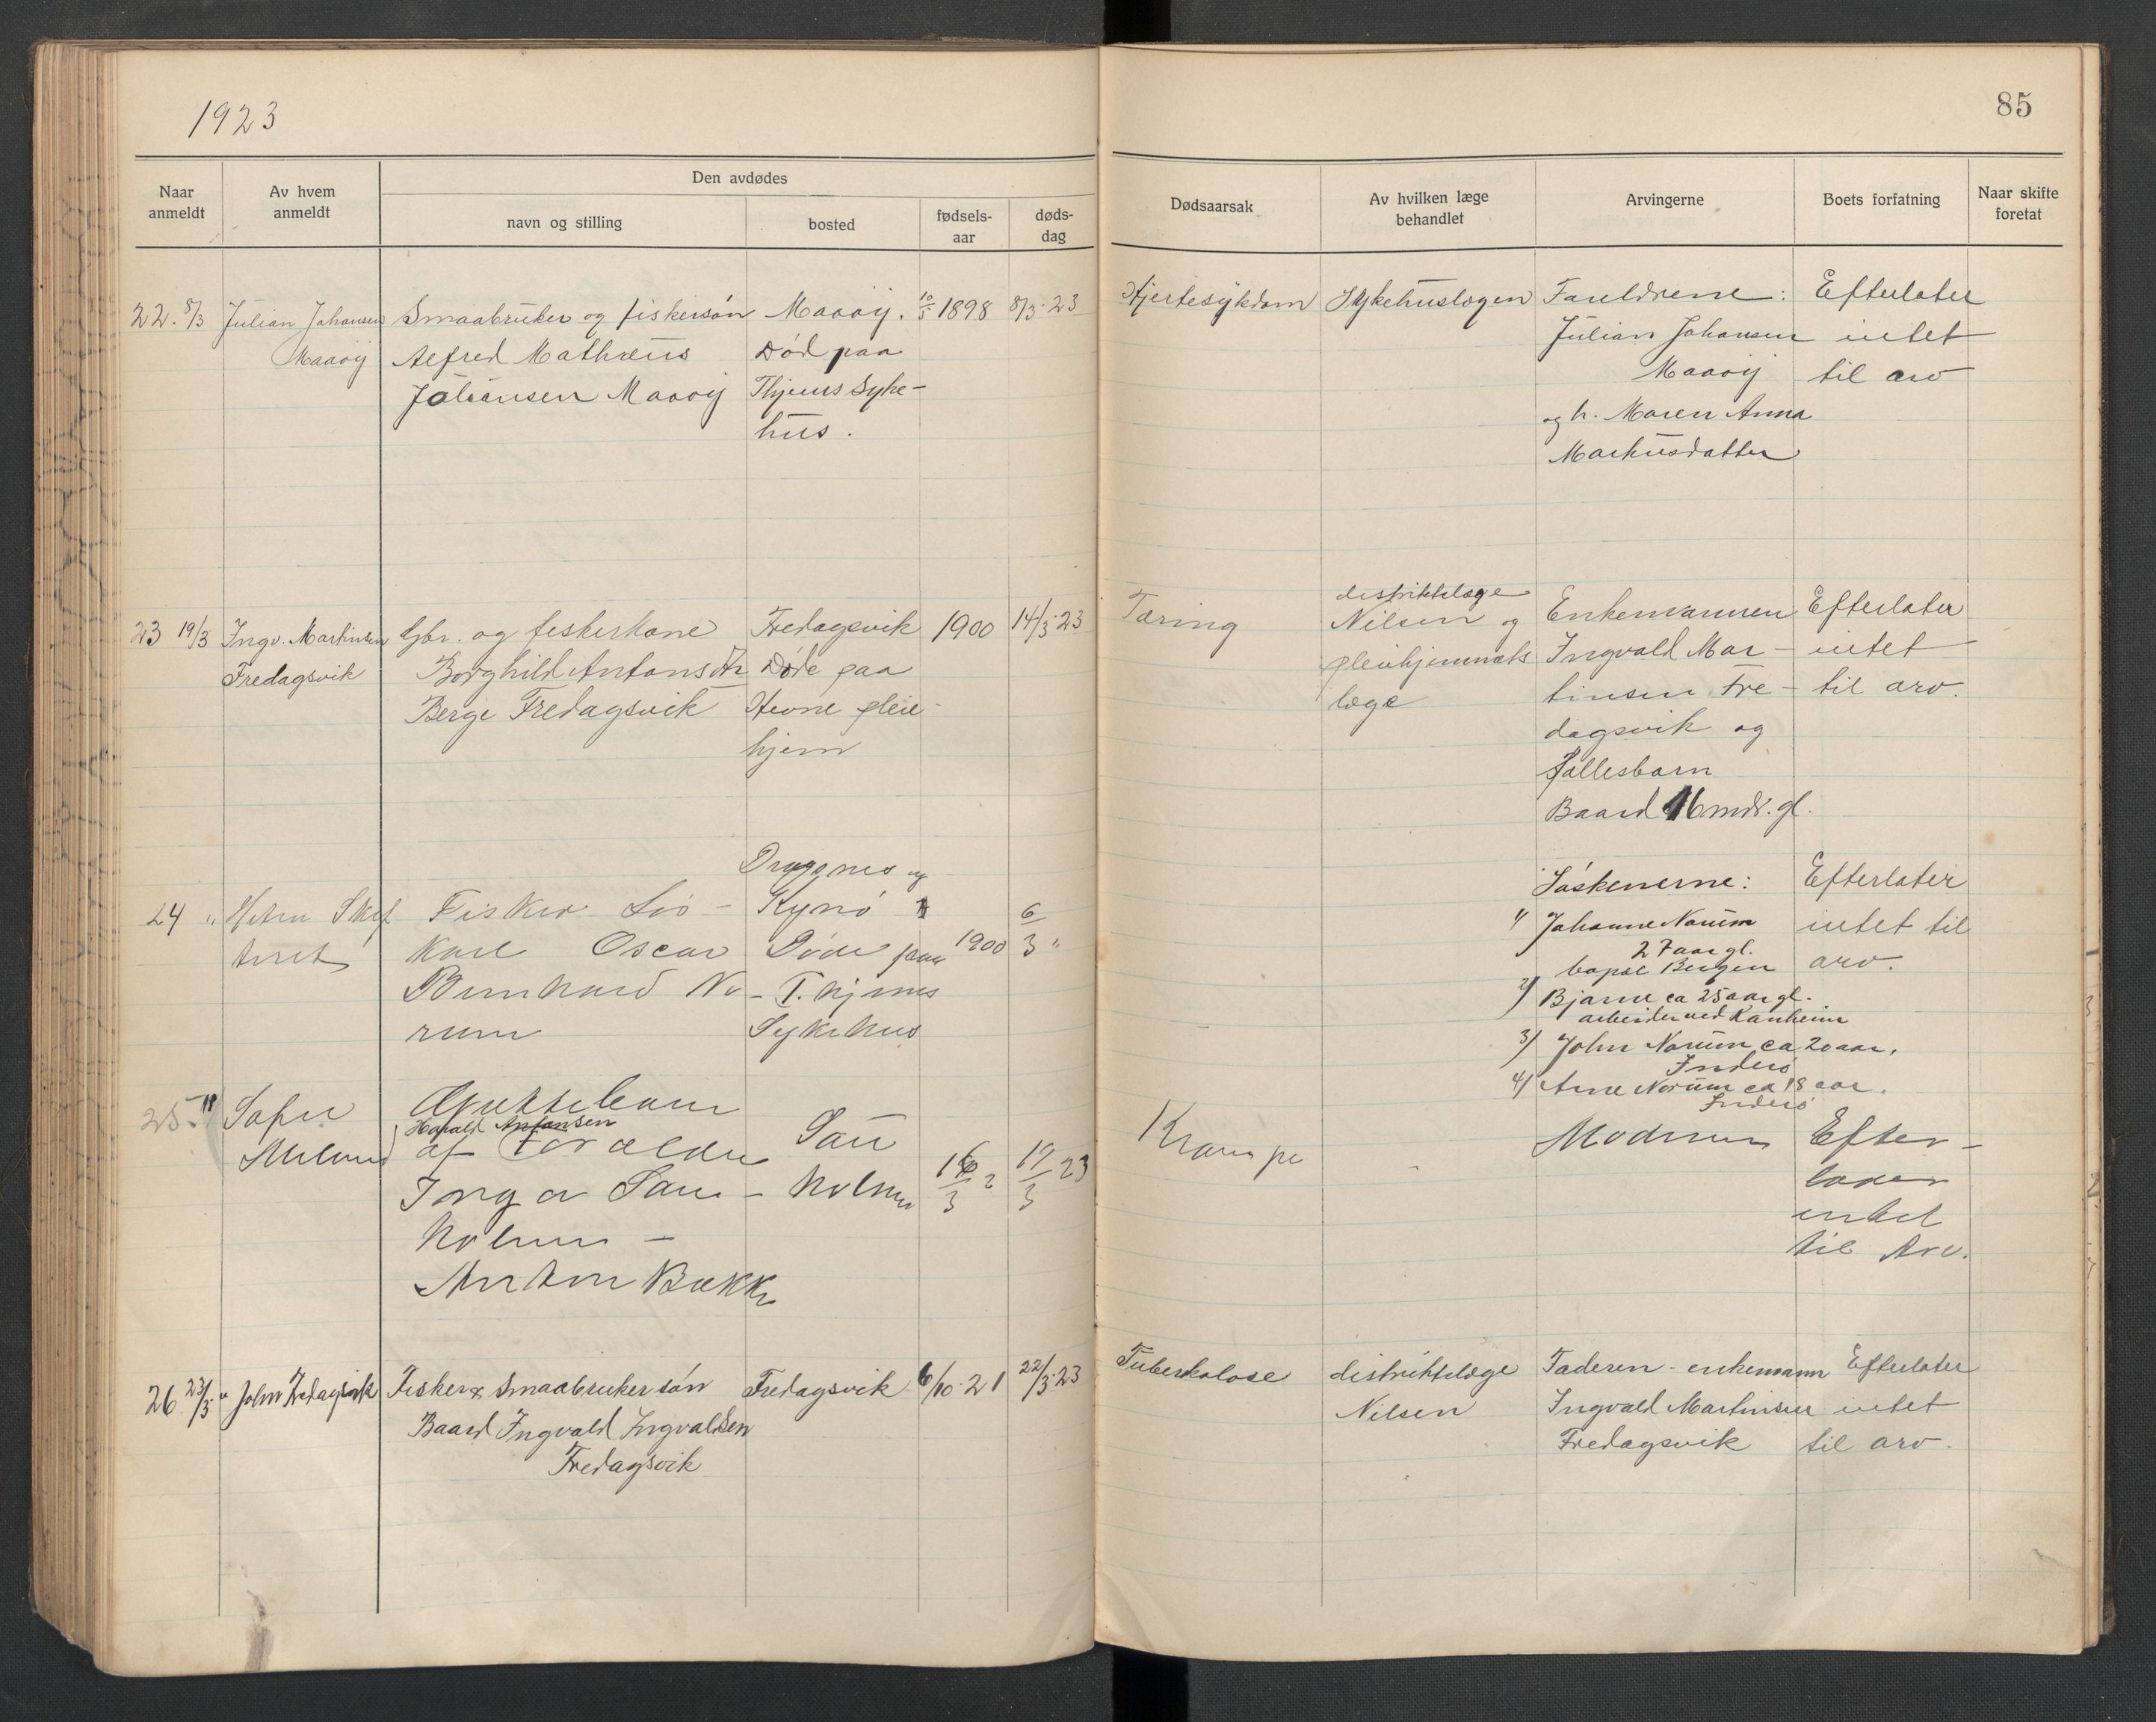 1923
85
Naar anmeldt
Av hvem anmeldt
Den avdødes
navn og stilling
bosted
fødsels-aar
døds-dag
Dødsaarsak
Av hvilken læge behandlet
Arvingerne
Boets forfatning
Naar skifte foretat
22. 8/3
Julian Johansen
Maaøy
Smaabruker og fiskersøn
Alfred Mathæus
Johansen Maaøy
Maaøy.
Død paa
Thjems Syke-
hus.
10/5 1898
8/3-23
Hjertesykdom
Sykehuslægen
Foreldrene:
Julian Johansen
Maaøy
og h. Maren Anna
Markusdatter
Efterlater
intet
til arv
23 19/3
Ingv. Martinsen
Fredagsvik
Gbr. og fiskerkone
Borghild Antonsdtr
Berge Fredagsvik
Fredagsvik
Døde paa
Hevne pleie-
hjem
1900
14/3-23
Tæring
distriktslæge
Nilsen og
pleiehjemmets
læge
Enkemannen
Ingvald Mar-
tinsen Fre-
dagsvik og
fællesbarn
Baard 16 mdr. gl.
Efterlater
intet
til arv.
24 "
Fisker
Karl Oscar
Bernhard No-
rum
og
Kyrø
Døde paa
T. hjems
Sykehus
1900
6/3 "
Søskenerne:
1/ Johanne Norum
27 aar gl.
Bergen
2/ Bjarne ca 25 aar gl.
arbeider ved Ranheim
3/ John Norum ca 20 aar.
Inderø
4/ Arne Norum ca 18 aar.
Inderø
Efterlater
intet til
arv.
25.
Harald Antonsen
af Foreldre
Inga Sau-
holmen -
Anton Bakke
Sau
holmen
19/3 23
Krampe
Moderen
Efter-
later
intet
til Arv.
26 23/3
John Fredagsvik
Fisker & Smaabruker søn
Baard Ingvald Ingvaldsen
Fredagsvik
Fredagsvik
6/10-21
22/3-23
Tuberkolose
distriktslæge
Nilsen
Faderen - enkemann
Ingvald Martinsen
Fredagsvik
Efterlater
intet
til arv.